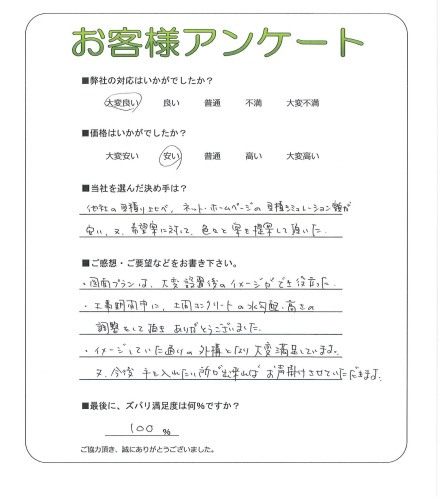 お客様アンケート
■弊社の対応はいかがでしたか？
大変良い 良い 普通 不満 大変不満
■価格はいかがでしたか？
大変安い 安い 普通 高い 大変高い
■当社を選んだ決め手は？
他社の見積り比べ、ネット・ホームページの見積シミュレーション額が
安い、又、希望案に対って、色々と案を提案して頂いた.
■ご感想・ご要望などをお書き下さい。
・図面プランは、大変設置後のイメージができ役立った.
・工事期間中に、土間コンクリートの水勾配・高さの
調整をして頂き ありがとうございました.
・イメージしていた通りの外構となり大変満足しています。
又、今後 手を入れたい所が出来れば お声掛けさせていただきます.
■最後に、ズバリ満足度は何％ですか？
100 ％
ご協力頂き、誠にありがとうございました。